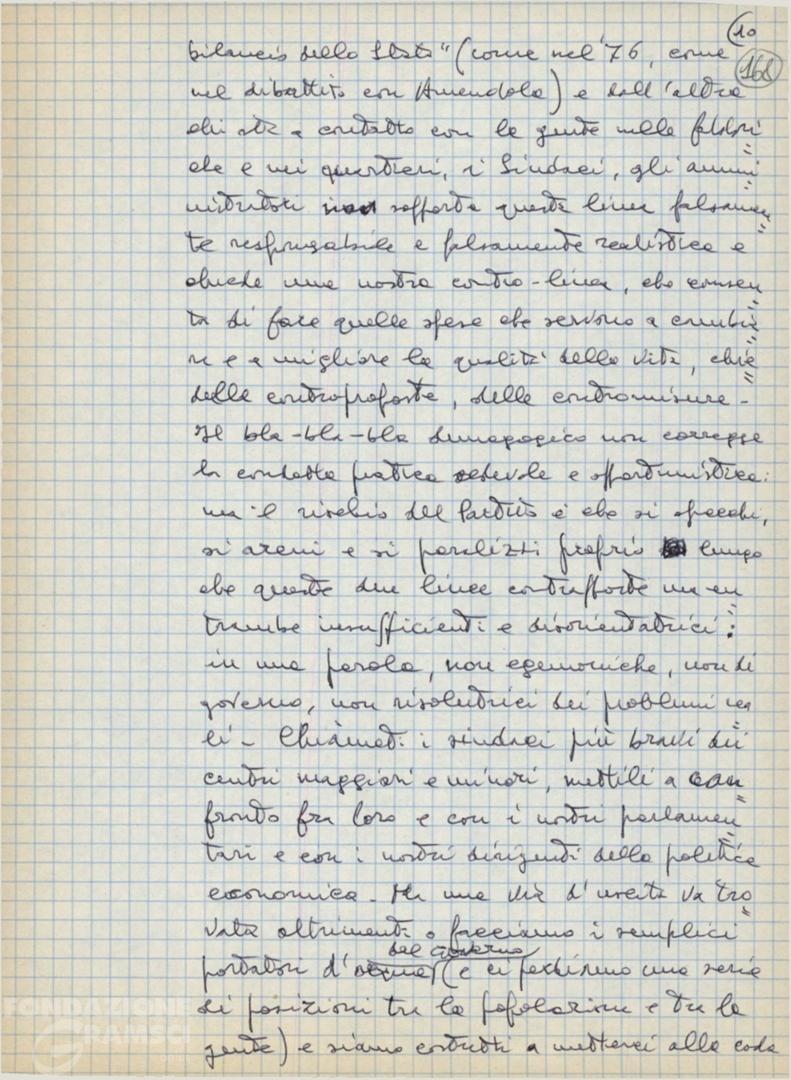 (10
168
bilancio dello Stato" (come nel '76, come
nel dibattito con Amendola) e dall'altra
chi sta a contatto con la gente nelle fabbri=
che e nei quartieri, i Sindaci, gli ammi=
nistratori non sopporta questa linea falsamen=
te responsabile e falsamente realistica e
chiede una nostra contro-linea, che consen=
ta di fare quelle spese che servono a cambia=
re e a migliorare la qualità della vita, chiede
delle controproposte, delle contromisure -
Il bla-bla-bla demagogico non corregge
la condotta pratica cedevole e opportunistica:
ma il rischio del Partito è che si spacchi,
si areni e si paralizzi proprio lungo
che queste due linee contrapposte ma en=
trambe insufficienti e disorientatrici:
in una parola, non egemoniche, non di
governo, non risolutrici dei problemi rea=
li - Chiamati i sindaci più bravi dei
centri maggiori e minori, mettili a con=
fronto fra loro e con i nostri parlamen=
tari e con i nostri dirigenti della politica
economica. Ma una via d'uscita va tro=
vata altrimenti o facciamo i semplici
del Governo
portatori d'acqua (e ci perdiamo una serie
di posizioni tra la popolazione e tra la
gente) e siamo costretti a metterci alla coda
FONDAZIONE
GRAMSCI